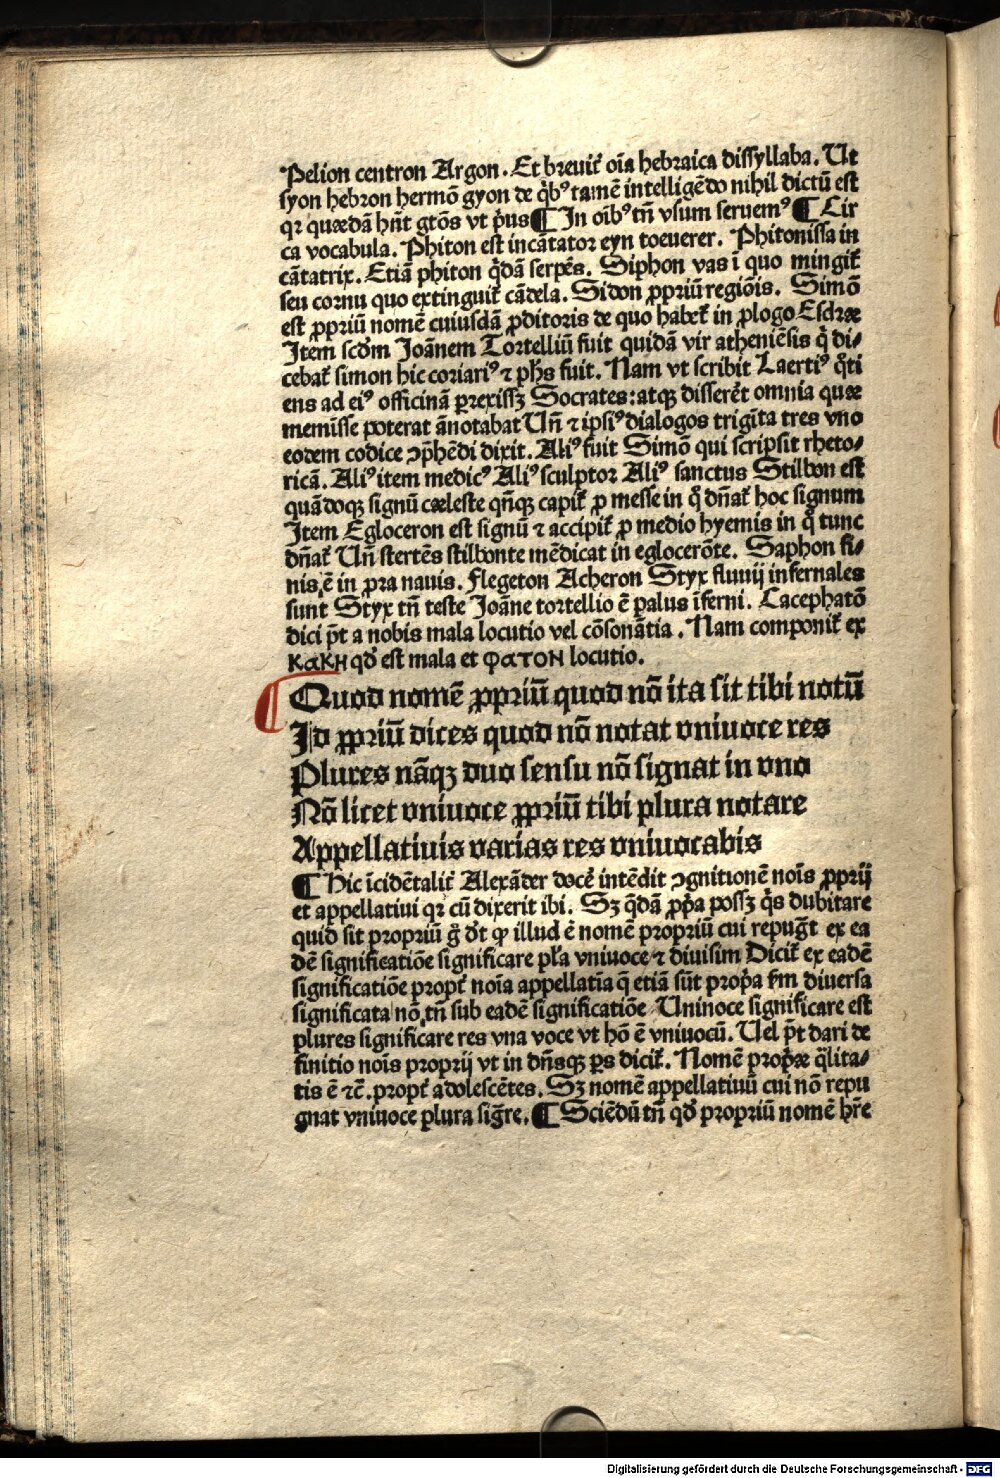 Pelion centron Argon. Et breuit̃ oĩa hebraica dissyllaba. Ut
syon hebron hermõ gyon de q̃bꝰ tamẽ intelligẽdo nihil dictũ est
qꝛ quædã hñt gtõs vt pͥus ¶ In oĩbꝰ tñ vsum seruemꝰ ¶ Cir
ca vocabula. Phiton est incãtator eyn toeuerer. Phitonissa in
cãtatrix. Etiã phiton q̃dã serpẽs. Siphon vas ĩ quo mingit̃
seu cornu quo extinguit̃ cãdela. Sidon ꝓpriũ regiõis. Simõ
est ꝓpriũ nomẽ cuiusdã ꝓditoris de quo habet̃ in ꝓlogo Esdræ
Item scđm Joãnem Tortelliũ fuit quidã vir atheniẽsis q̃ di⸗
cebat̃ simon hic coriariꝰ ⁊ pħs fuit. Nam vt scribit Laertiꝰ q̃ti
ens ad eiꝰ officinã ꝑrexissꝫ Socrates: atqꝫ disserẽt omnia quæ
memisse poterat ãnotabat Uñ ⁊ ipsiꝰ dialogos trigĩta tres vno
eodem codice ꝯp̃hẽdi dixit. Aliꝰ fuit Simõ qui scripsit rheto⸗
ricã. Aliꝰ item medicꝰ Aliꝰ sculptor Aliꝰ sanctus Stilbon est
quãdoqꝫ signũ cæleste qñqꝫ capit̃ ꝓ messe in q̃ dñat̃ hoc signum
Item Egloceron est signũ ⁊ accipit̃ ꝓ medio hyemis in q̃ tunc
dñat̃ Uñ stertẽs stilbonte mẽdicat in eglocerõte. Saphon fi⸗
nis ẽ in ꝓra nauis. Flegeton Acheron Styx fluuij infernales
sunt Styx tñ teste Joãne tortellio ẽ palus ĩferni. Cacephatõ
dici p̃t a nobis mala locutio vel cõsonãtia. Nam componit̃ ex
κακη qđ est mala et φατον locutio.
Quod nomẽ ꝓpriũ quod nõ ita sit tibi notũ
Id ꝓpriũ dices quod nõ notat vniuoce res
Plures nãqꝫ duo sensu nõ signat in vno
Nõ licet vniuoce ꝓpriũ tibi plura notare
Appellatiuis varias res vniuocabis
¶ Hic ĩcidẽtalit̃ Alexãder docẽ intẽdit ꝯgnitionẽ noĩs ꝓprij
et appellatiui qꝛ cũ dixerit ibi. Sꝫ q̃dã ꝓp̃a possꝫ q̃s dubitare
quid sit propriũ g̃ đt ꝙ illud ẽ nomẽ propriũ cui repug̃t ex ea
dẽ significatiõe significare pła vniuoce ⁊ diuisim Dicit̃ ex eadẽ
significatiõe propt̃ noĩa appellatĩa q̃ etiã sũt prop̃a fm diuersa
significata nõ tñ sub eadẽ significatiõe Uninoce significare est
plures significare res vna voce vt hõ ẽ vniuocũ. Uel p̃t dari de
finitio noĩs proprij vt in dñsqꝫ ꝑs dicit̃. Nomẽ prop̃æ q̃lita⸗
tis ẽ ⁊c̃. propt̃ adolescẽtes. Sꝫ nomẽ appellatiuũ cui nõ repu
gnat vniuoce plura sig̃re. ¶ Sciẽdũ tñ qđ propriũ nomẽ hr̃e
Digitalisierung gefördert durch die Deutsche Forschungsgemeinschaft - DFG